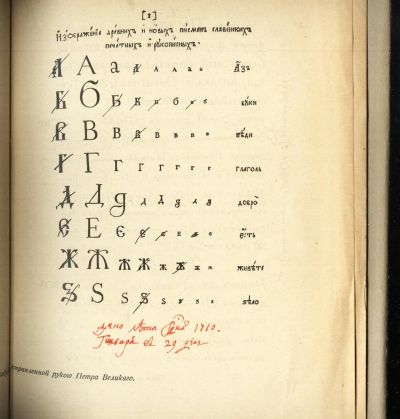 [1]
Изображенїе древнихъ и новыхъ писменъ славенскихъ
печатныхъ и рукописныхъ.
А А а А а а а Азъ
Б Б Б Б б б б буки
В В В В в в в вѣди
Г Г Г г г г г глаголь
Д Д д д д д д добро
Є Е Є є є є є есть
Ж Ж Ж Ж ж ж ж живѣте
Ѕ Ѕ Ѕ Ѕ ѕ ѕ ѕ ѕело
дано лѣта 1710.
Генваря въ 29 день
правленной рукою Петра Великаго.